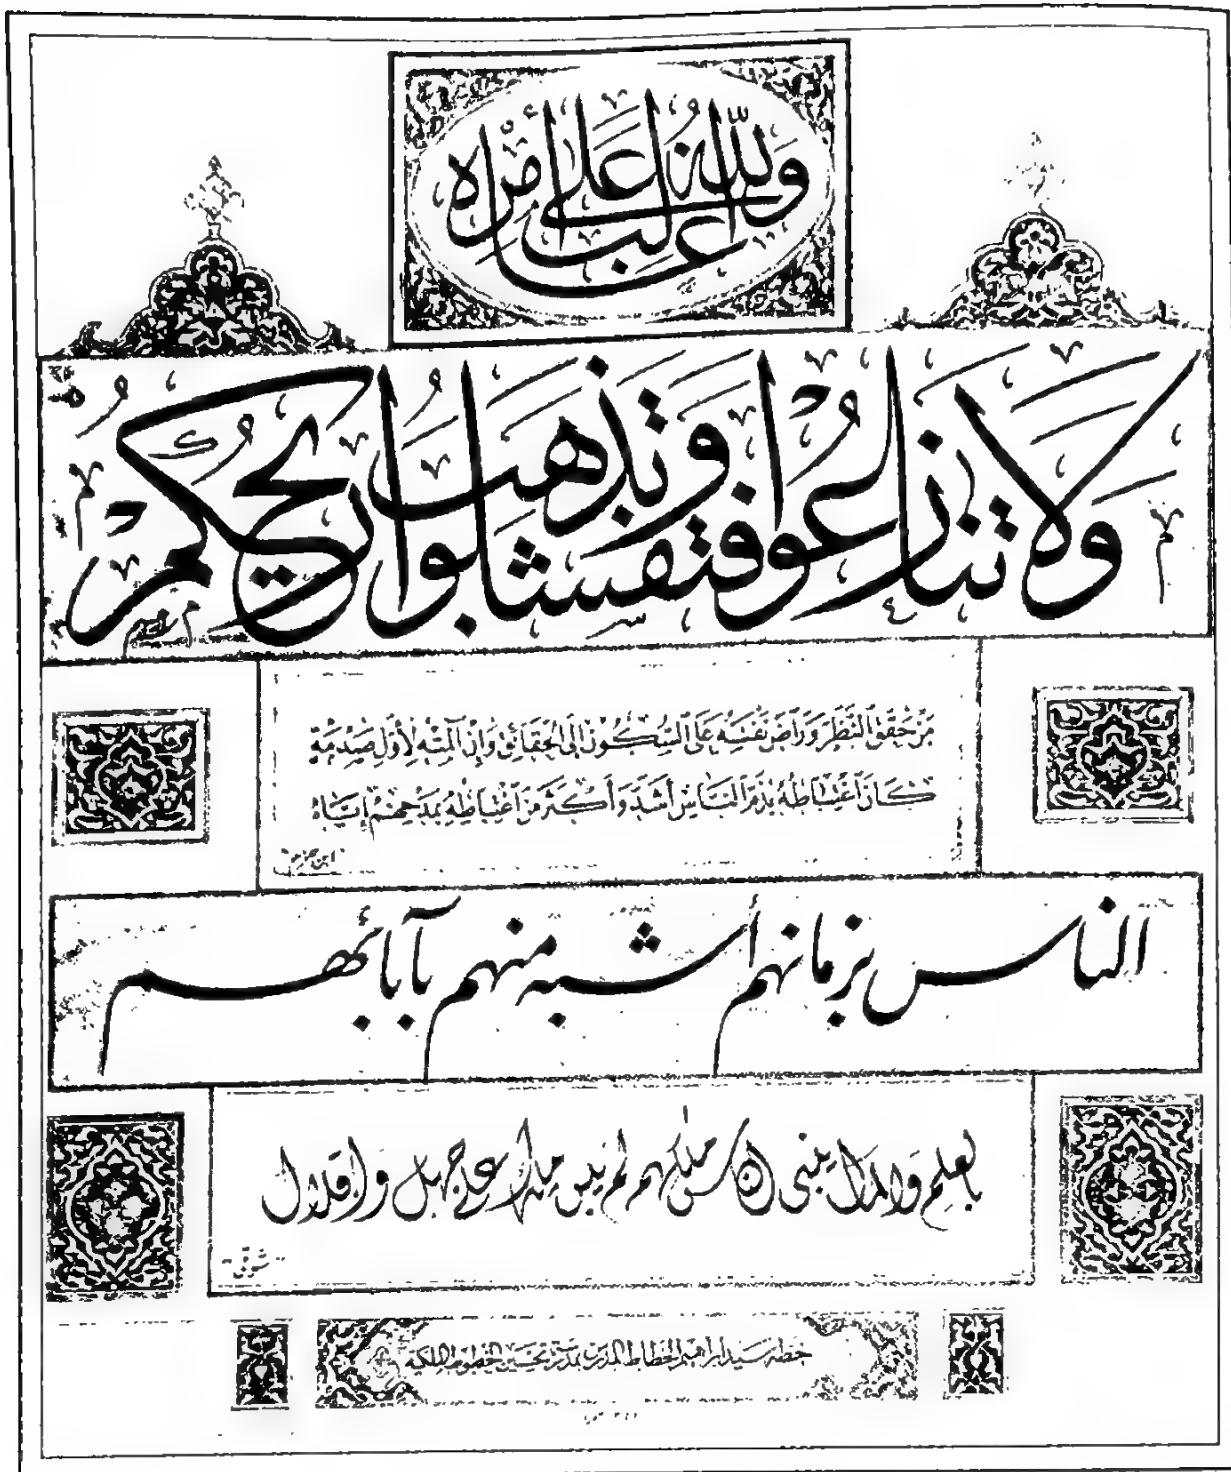 وَاللهُ غَالِبٌ عَلَىٰ أَمْرِهِ
وَلَا تَنَازَعُوا فَتَفْشَلُوا وَتَذْهَبَ رِيحُكُمْ
مَنْ حَقَّقَ النَّظَرَ وَرَاضَ نَفْسَهُ عَلَى السُّكُونِ إِلَى الْحَقَائِقِ وَإِنْ آلَمَتْهُ لِأَوَّلِ صَدْمَةٍ
كَانَ اغْتِبَاطُهُ بِذَمِّ النَّاسِ أَشَدَّ وَأَكْثَرَ مِنَ اغْتِبَاطِهِ بِمَدْحِهِمْ إِيَّاهُ
"ابن حزم"
الناس بزمانهم أشبه منهم بآبائهم
بالعلم والمال يبني الناس ملكهم لم يبن ملك على جهل وإقلال
"شوقي"
خطه سيد ابراهيم الخطاط المدرس بمدرسة تحسين الخطوط الملكية